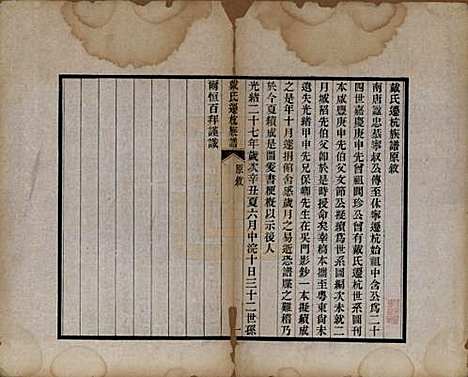 戴氏遷杭族譜原敘
南唐諡忠恭寧叔公傳至休寧遷杭始祖中含公爲二十
四世嘉慶庚申先曾祖閬珍公曾有戴氏遷杭世系圖刊
本咸豐庚申先伯父文節公擬續爲世系圖次未就二
月城陷先伯父卽於是時授命矣幸稿本攜至粤東尙未
遺失光緒甲申先兄保卿先生在吴門影鈔一本擬續成
之是年十月遽捐館舍感歲月之易逝恐譜牒之難稽乃
於今夏續成是圖爰書梗槪以示後人
光緒二十七年歲次辛丑夏六月中浣十日三十二世孫
爾恒百拜謹識
戴氏遷杭族譜
原敘
一